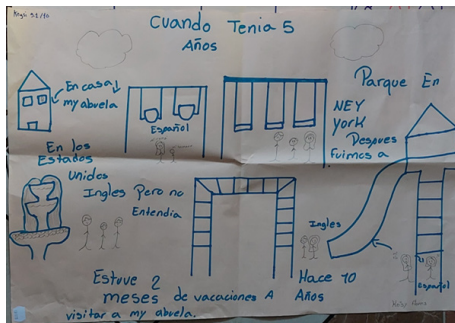 Cuando Tenia 5
Años
En casa
my abuela
Parque En
NEY
york
Despues
Fuimos a
Español
En los
Estados
Unidos
Ingles Pero no
Entendia
Ingles
Español
Estuve 2
meses de vacaciones A
visitar a my abuela.
Hace 10
Años